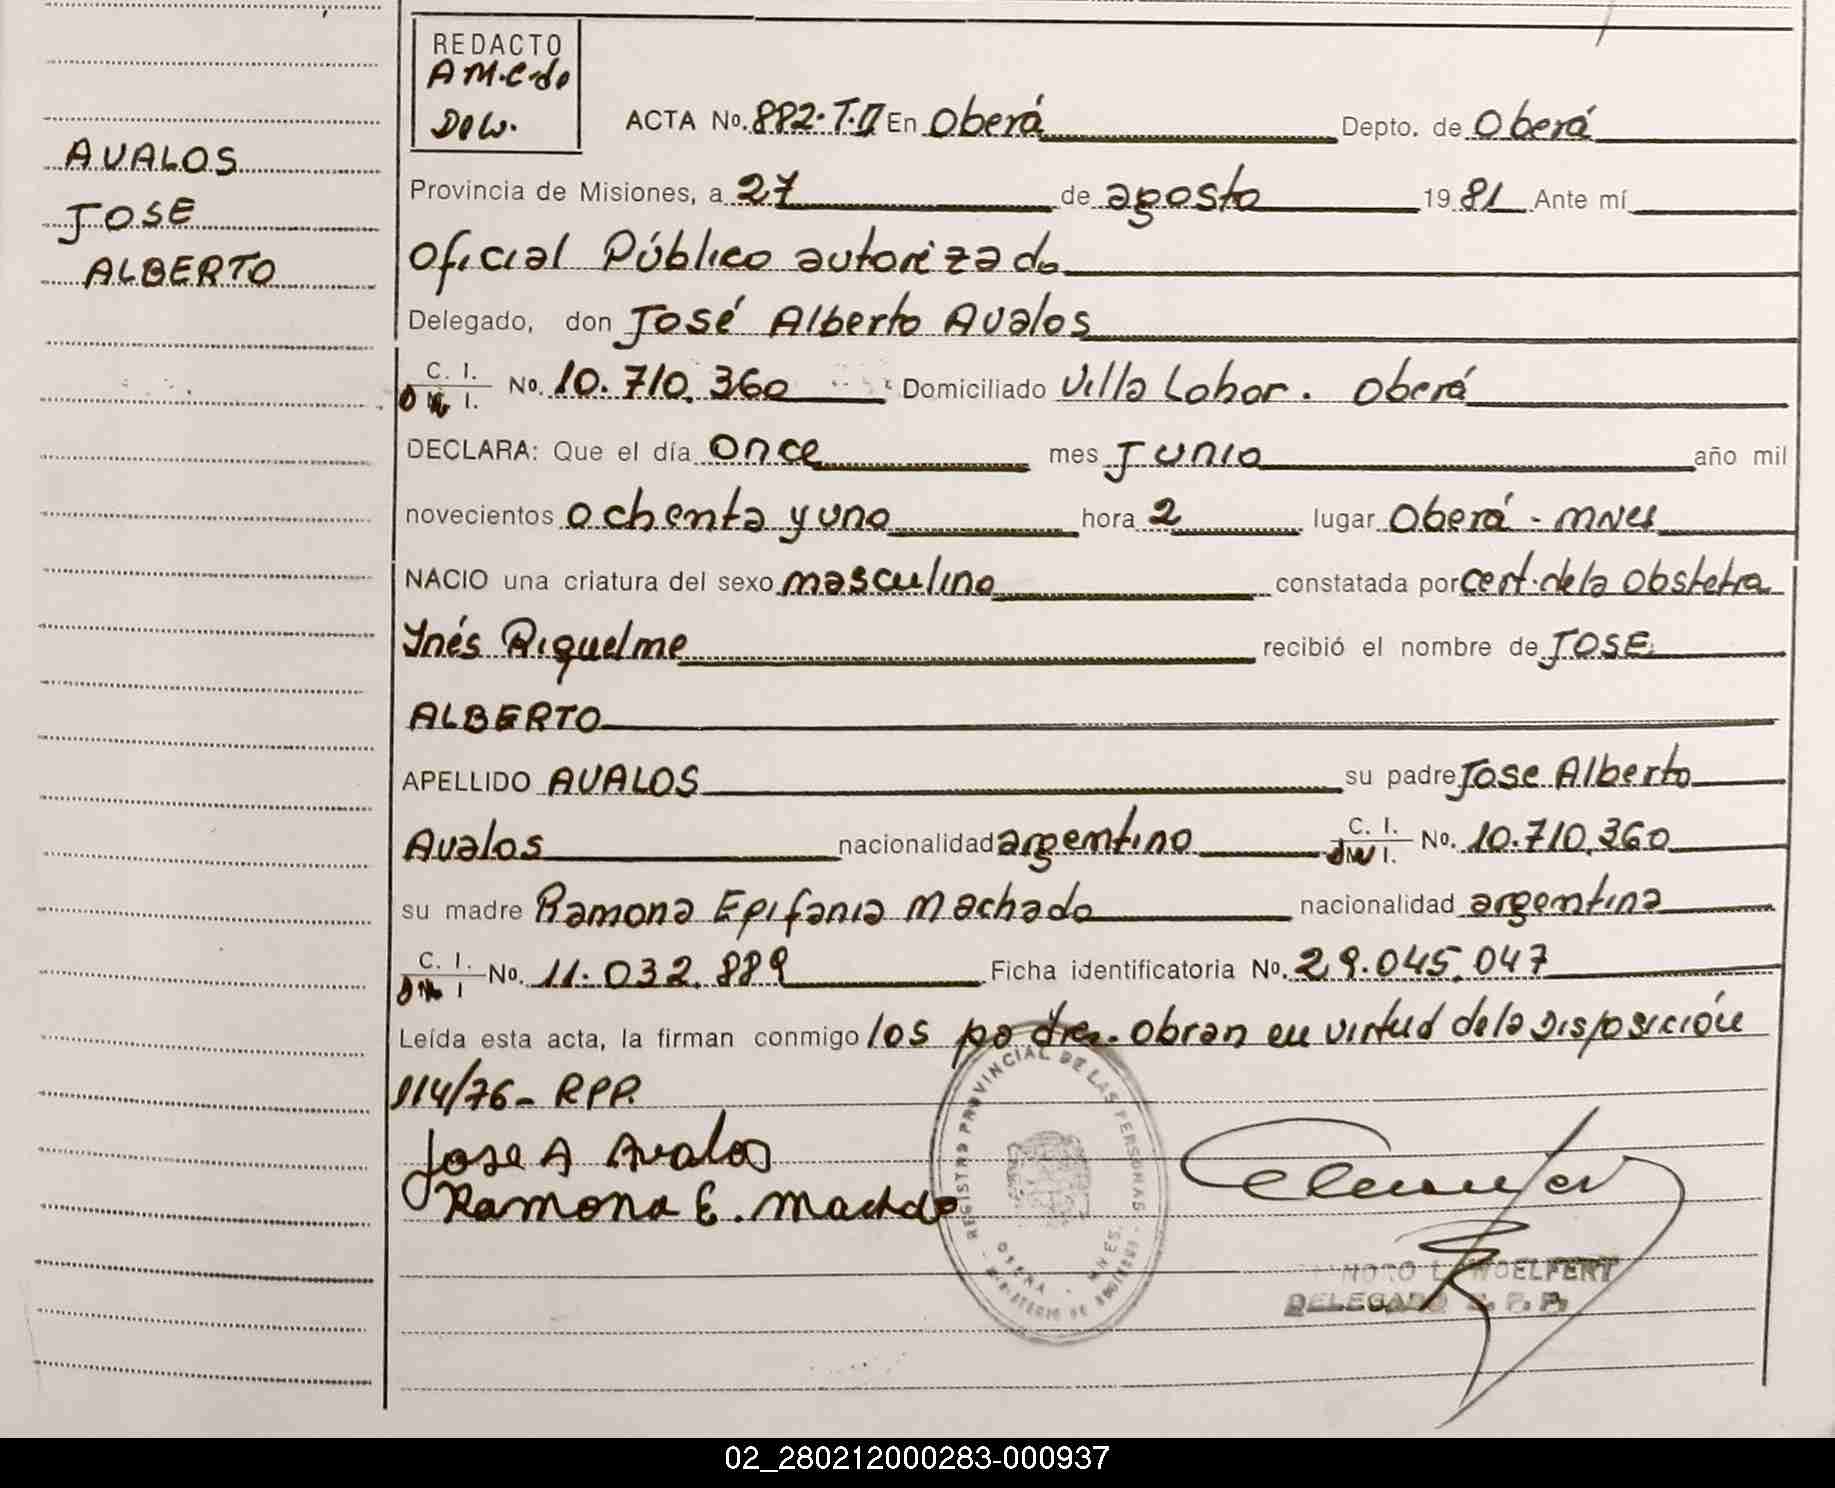 REDACTO
A M.C-do
Dow.
AVALOS
JOSE
ALBERTO
ACTA No. 882.T.II En Oberá Depto. de Oberá
Provincia de Misiones, a 27 de agosto 1981 Ante mí
Oficial Público autorizado
Delegado, don José Alberto Avalos
C. I.
D N I. No. 10.710.360 Domiciliado Villa Lohor. Oberá
DECLARA: Que el día once mes Junio año mil
novecientos ochenta y uno hora 2 lugar Oberá - MNES
NACIO una criatura del sexo masculino constatada por cert. de la Obstetra
Inés Riquelme recibió el nombre de JOSE
ALBERTO
APELLIDO AVALOS su padre Jose Alberto
Avalos nacionalidad argentino C. I. DNI. No. 10.710.360
su madre Ramona Epifania Machado nacionalidad argentina
C. I. DNI No. 11.032.889 Ficha identificatoria No. 29.045.047
Leída esta acta, la firman conmigo los padres. obran en virtud de la Disposición
114/76- RPP.
Jose A Avalos
Ramona E. Machdo
REGISTRO PROVINCIAL DE LAS PERSONAS
OBERA - MNES.
MINISTERIO DE GOBIERNO
WOELFERT
DELEGADO R. P. P.
02_280212000283-000937